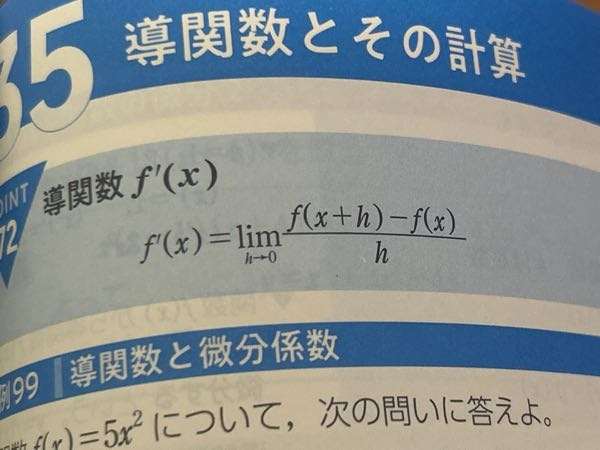 35 導関数とその計算
POINT 72
導関数 f'(x)
f'(x) = lim_{h→0} \frac{f(x+h)-f(x)}{h}
例99 導関数と微分係数
関数 f(x)=5x² について，次の問いに答えよ。